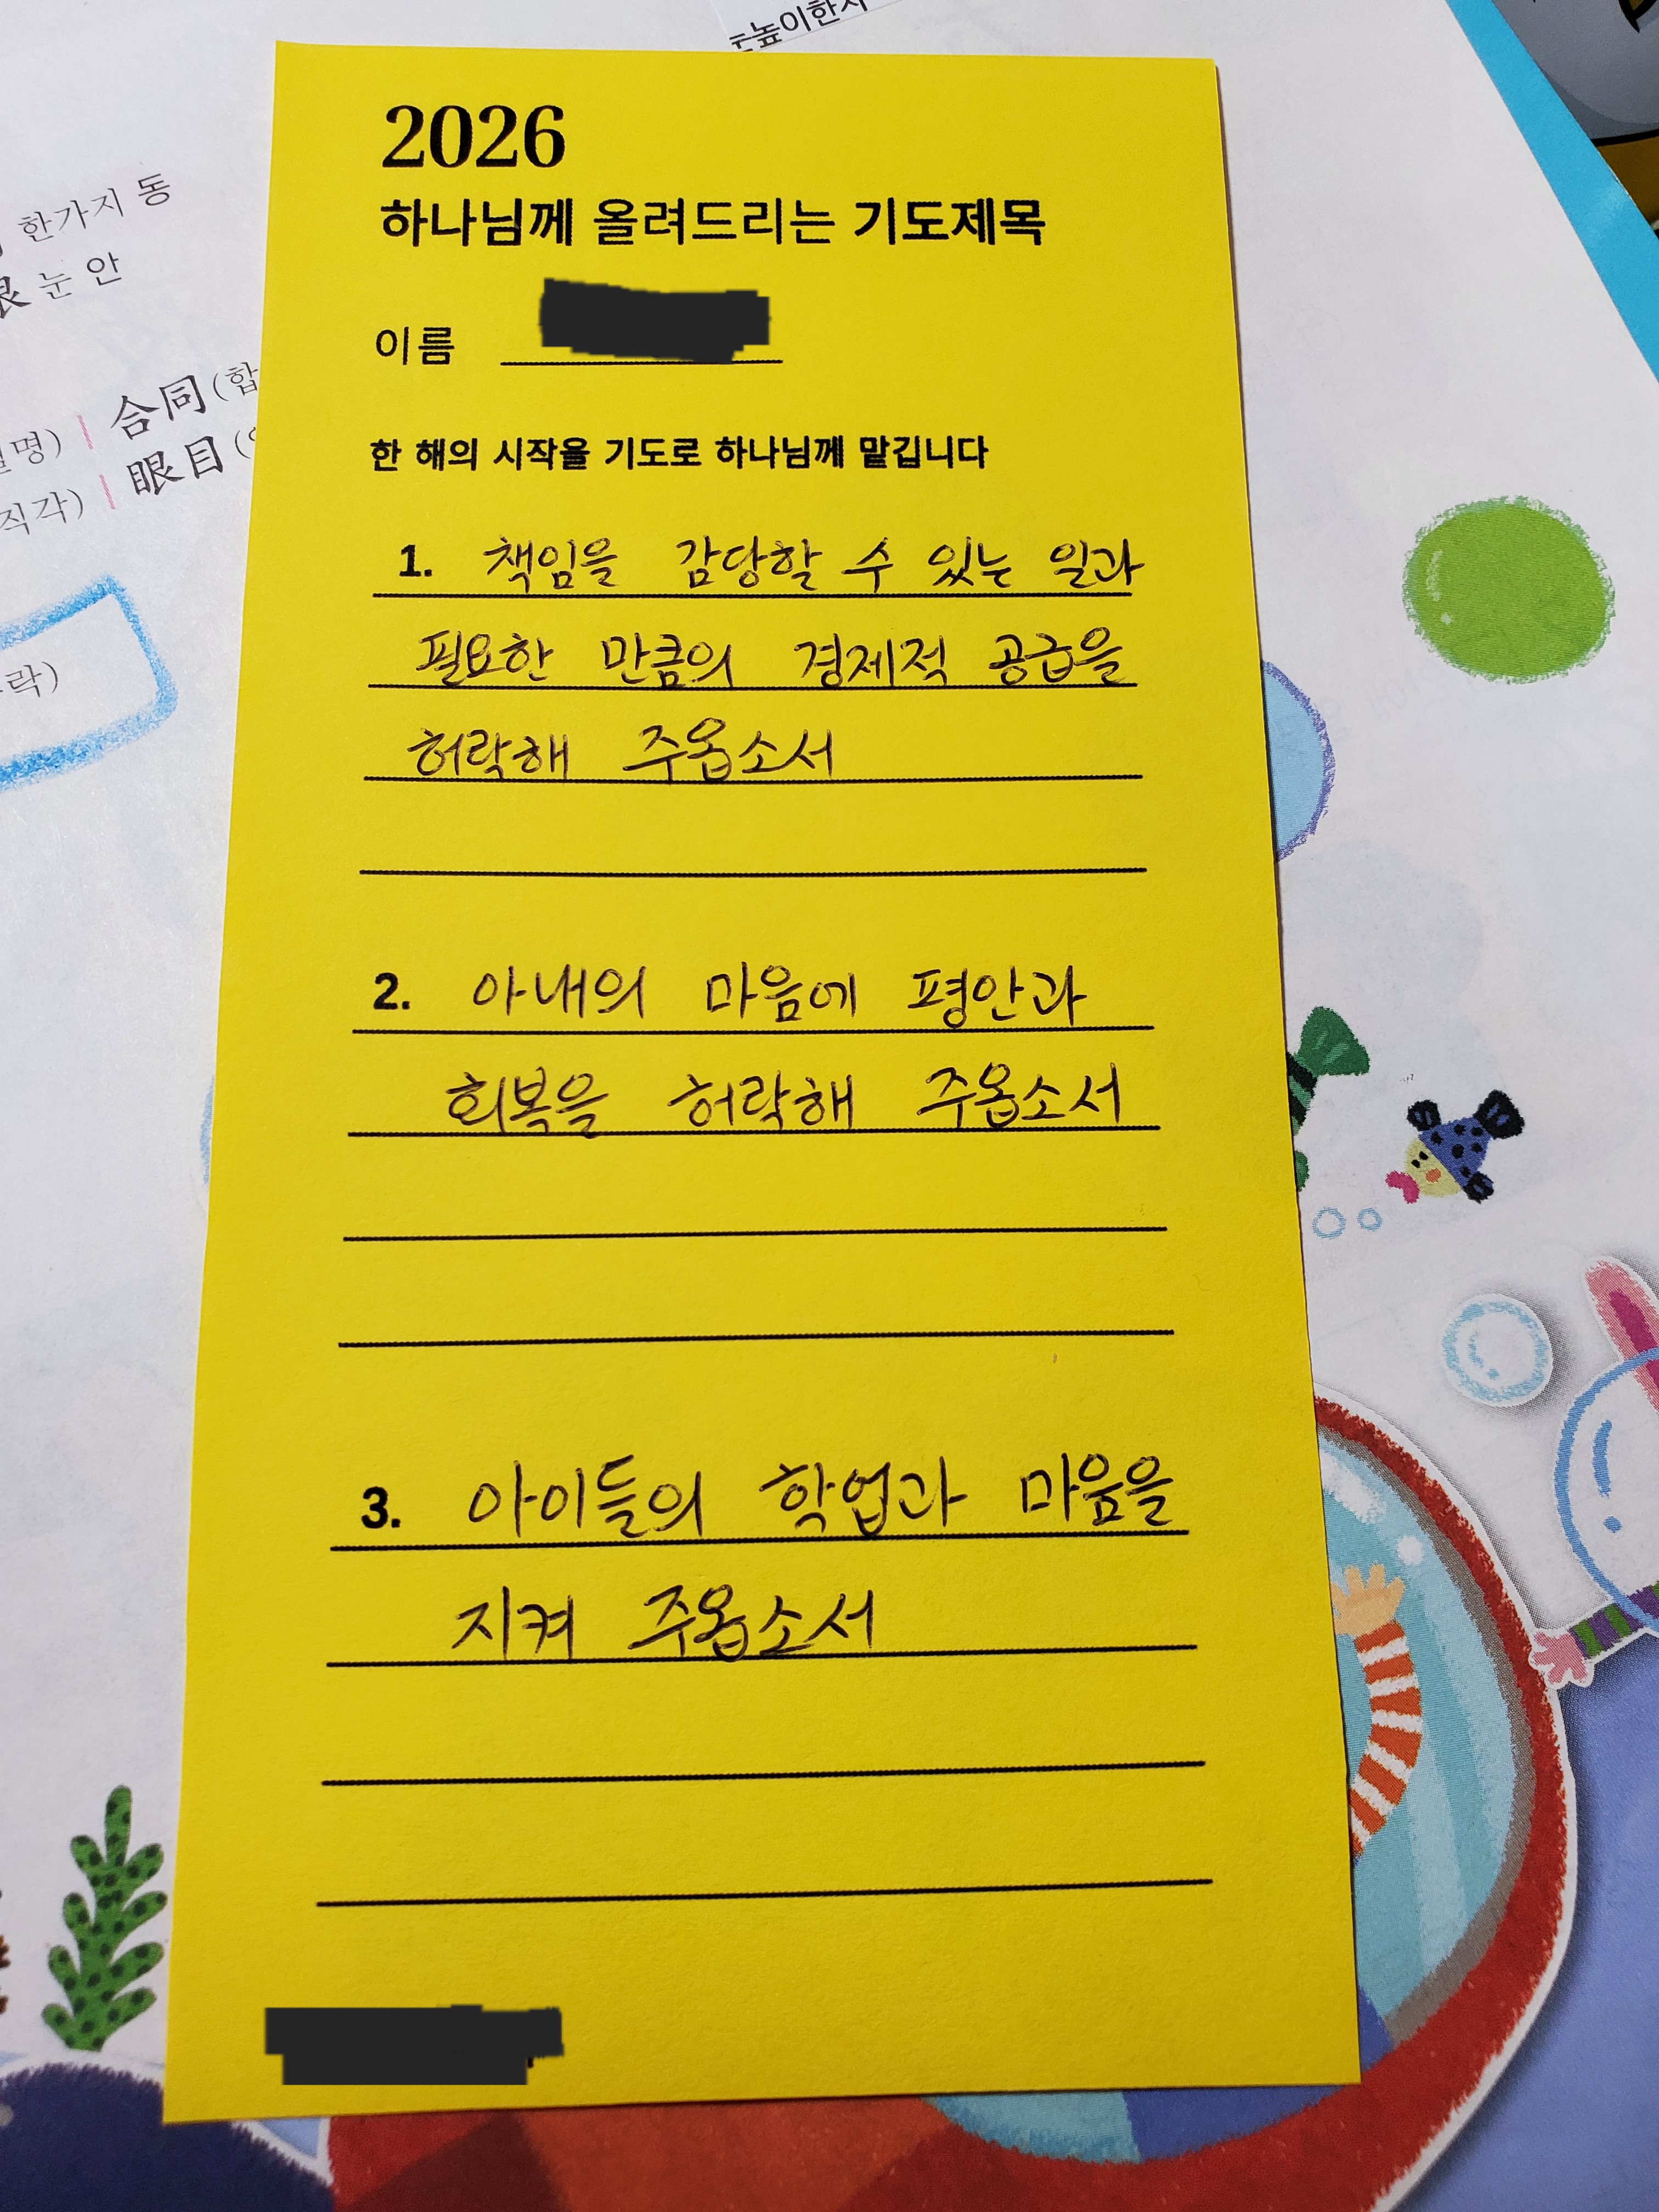 높이한자
한가지 동
눈 안
合同(합
眼目(
직각)
락)
2026
하나님께 올려드리는 기도제목
이름
한 해의 시작을 기도로 하나님께 맡깁니다
1. 책임을 감당할 수 있는 일과
필요한 만큼의 경제적 공급을
허락해 주옵소서
2. 아내의 마음에 평안과
회복을 허락해 주옵소서
3. 아이들의 학업과 마음을
지켜 주옵소서